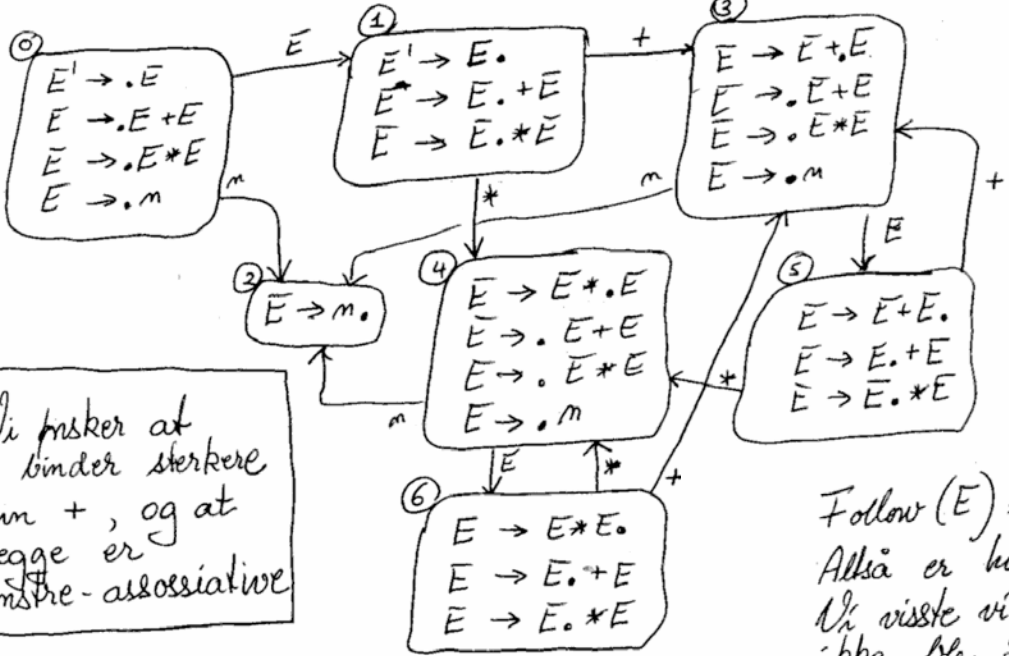 0
E' → .E
E → .E+E
E → .E*E
E → .n
E
1
E' → E.
E → E.+E
E → E.*E
+
3
E → E+.E
E → .E+E
E → .E*E
E → .n
n
*
n
E
+
2
E → n.
4
E → E*.E
E → .E+E
E → .E*E
E → .n
5
E → E+E.
E → E.+E
E → E.*E
*
n
E
*
+
6
E → E*E.
E → E.+E
E → E.*E
Vi ønsker at
binder sterkere
enn +, og at
begge er
venstre-assossiative
Follow (E)
Altså er
Vi visste
ikke